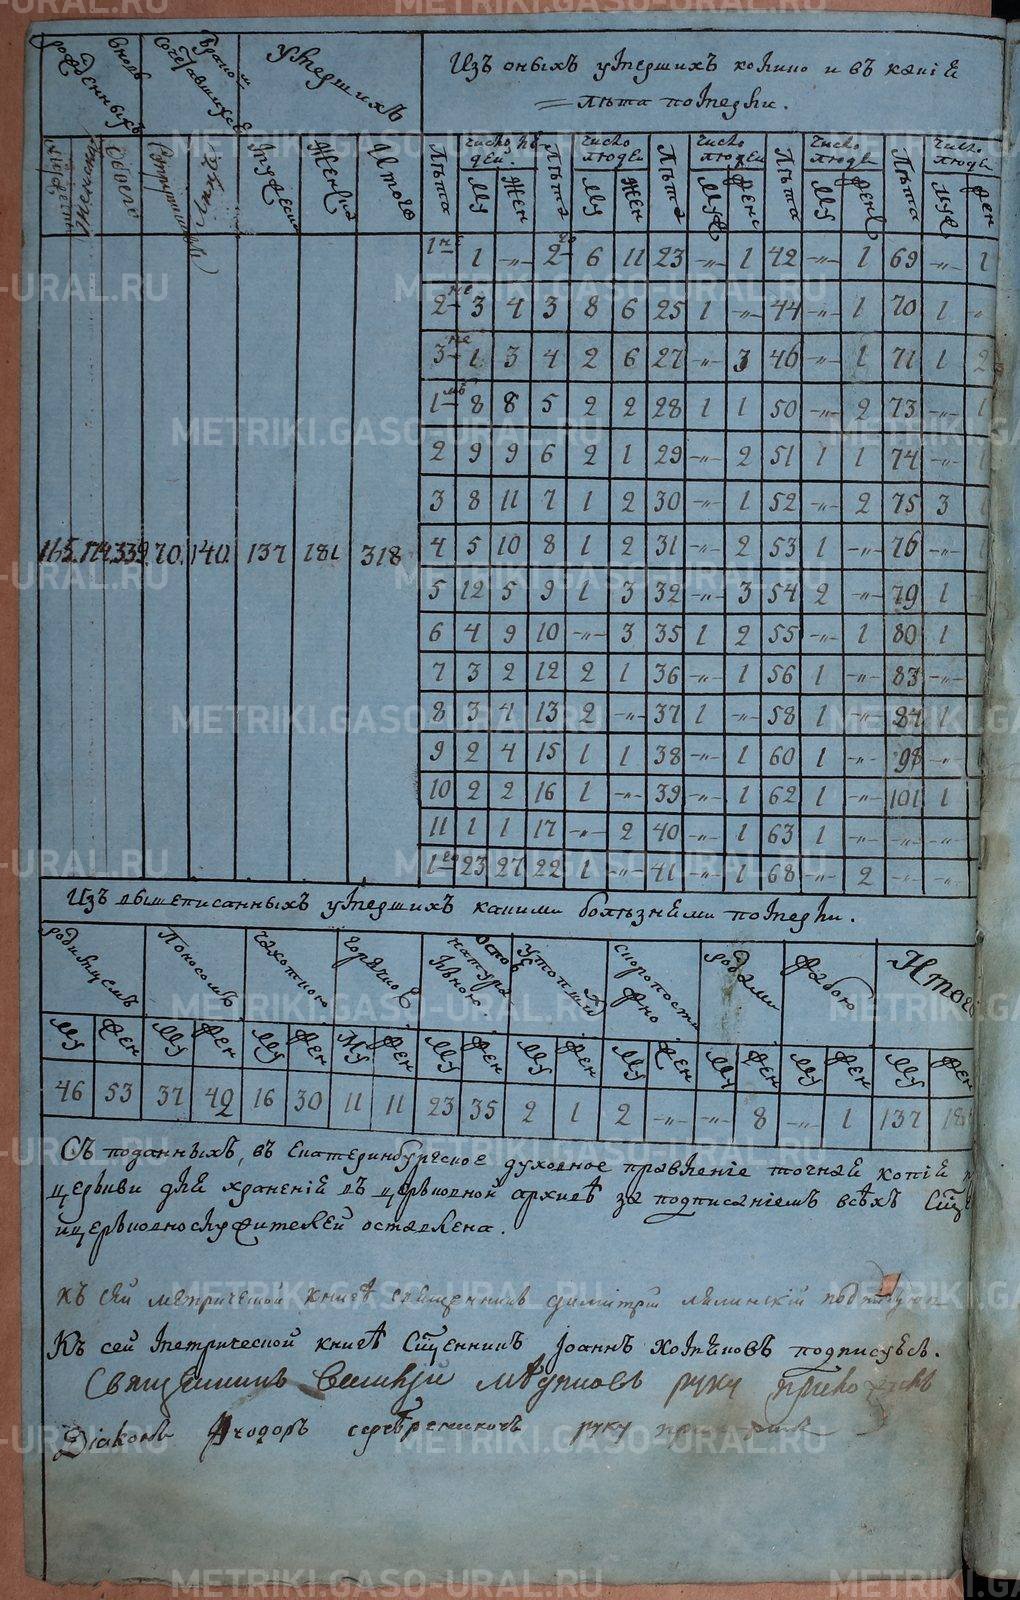 вновь рожденныхъ
бракомъ сочетавшихся
умершихъ
Изъ оныхъ умершихъ колико и въ каніе
лѣта померли.
мужеска женска обоего
мужеска женска итого
Лѣта число людей Лѣта число людей Лѣта число людей Лѣта число людей Лѣта число людей
му жен му жен муж жен му жен муж жен
1 не 1 -"- 2 го 6 11 23 -"- 1 42 -"- 1 69 -"- 1
2 не 3 4 3 8 6 25 1 -"- 44 -"- 1 70 1 "
3 не 1 3 4 2 6 27 -"- 3 46 -"- 1 71 1 2
1 мѣ 8 8 5 2 2 28 1 1 50 -"- 2 73 -"- 1
2 9 9 6 2 1 29 -"- 2 51 1 1 74 -"-
3 8 11 7 1 2 30 -"- 1 52 -"- 2 75 3
165. 174. 339. 70. 140. 137 181 318
4 5 10 8 1 2 31 -"- 2 53 1 -"- 76 -"-
5 12 5 9 1 3 32 -"- 3 54 2 -"- 79 1
6 4 9 10 -"- 3 35 1 2 55 -"- 1 80 1
7 3 2 12 2 1 36 -"- 1 56 1 -"- 83 -"-
8 3 4 13 2 -"- 37 1 -"- 58 1 -"- 84 1
9 2 4 15 1 1 38 -"- 1 60 1 -"- 98 -"-
10 2 2 16 1 -"- 39 -"- 1 62 1 -"- 101 1
11 1 1 17 -"- 2 40 -"- 1 63 1 -"- -"- -"-
1 го 23 27 22 1 -"- 41 -"- 1 68 -"- 2 -"- -"-
Изъ вышеписанныхъ умершихъ каними болѣзньми померли.
родимцемъ Поносомъ чахотною горячно оспою натуральною утопшія скоропостижно родами жабою Итого
му жен му жен му жен му жен му жен му жен му жен му жен му жен му жен
46 53 37 42 16 30 11 11 23 35 2 1 2 -"- -"- 8 -"- 1 137 181
Съ поданныхъ, въ Екатеринбургское духовное правленіе точная копій
церькви для храненій въ церьковной архивѣ за подписаніемъ всѣхъ Сщ
ищерьковнослужителей оставлена.
къ сей метрической книгѣ священникъ димитрій лялинскій подписуюсь
Къ сей метрической книгѣ Сщенникъ Іоаннъ Хомяковъ подписуюсь.
Священникъ Василій руку приложилъ
Діаконъ Ѳеодоръ серебрениковъ руку приложилъ
METRIKI.GASO-URAL.RU